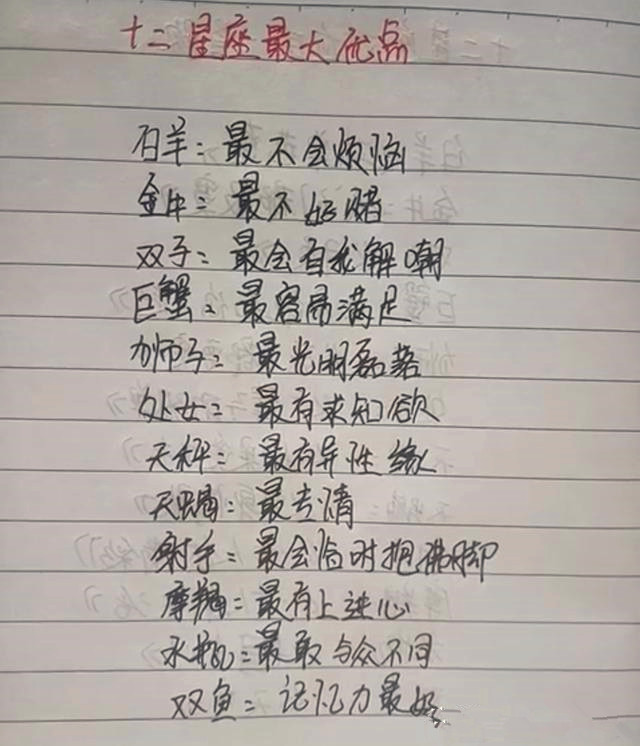 十二星座最大优点
白羊：最不会烦恼
金牛：最不好赌
双子：最会自我解嘲
巨蟹：最容易满足
狮子：最光明磊落
处女：最有求知欲
天秤：最有异性缘
天蝎：最专情
射手：最会临时抱佛脚
摩羯：最有上进心
水瓶：最敢与众不同
双鱼：记忆力最好